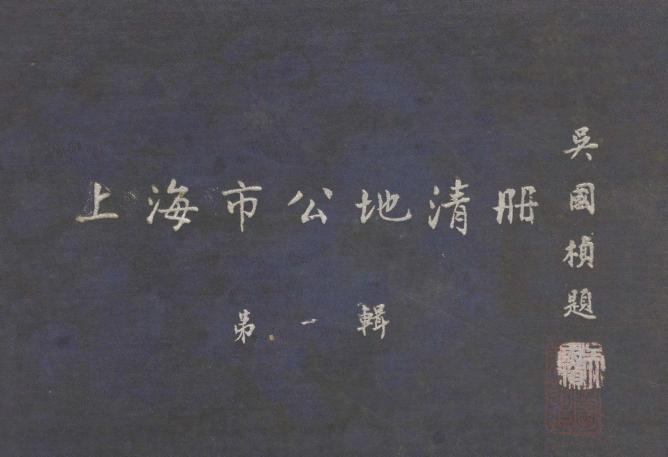 上海市公地清册
第一輯
吳國楨題